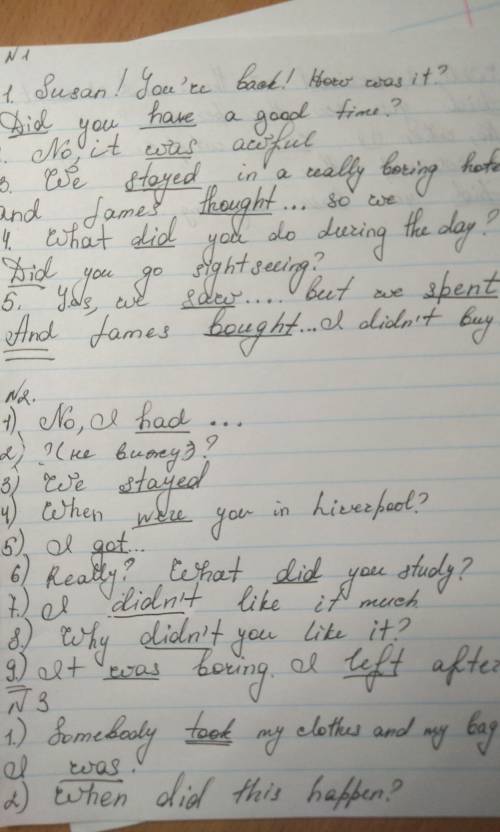 N1
1. Susan! You're back! How was it?
Did you have a good time?
. No, it was awful
3. We stayed in a really boring hote
and James thought... so we
4. What did you do during the day?
Did you go sightseeing?
5. Yes, we saw.... but we spent
And James bought... I didn't buy
N2.
1) No, I had ...
2) ?(не вижу)?
3) We stayed
4) When were you in Liverpool?
5) I got...
6) Really? What did you study?
7.) I didn't like it much
8.) Why didn't you like it?
9.) It was boring. I left after
N3
1.) Somebody took my clothes and my bag
I was.
2) When did this happen?